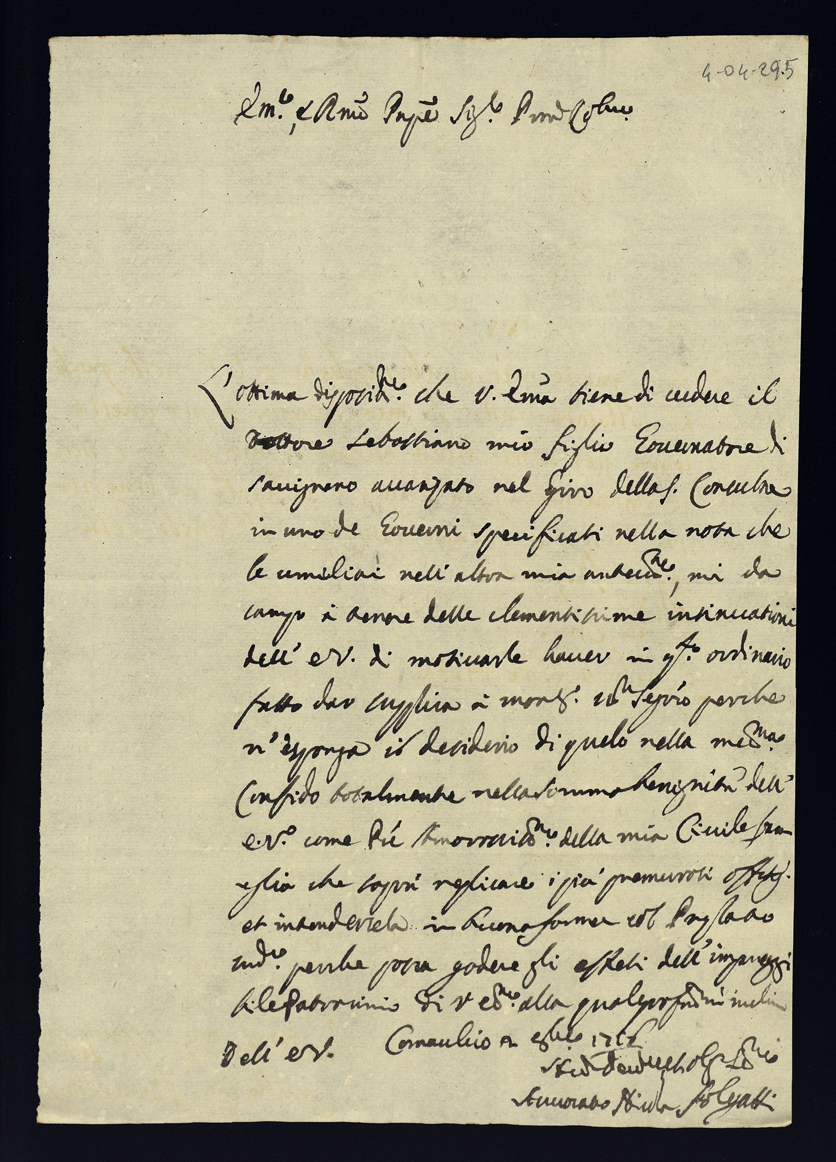 4-04-295
L'ottima disposit.ne che V. Em.a tiene di vedere il
Dottore Sebastiano mio figlio Governatore di
Savignano avanzato nel giro della S. Consulta
in uno de Governi specificati nella nota che
le umiliai nell'altra mia anteced.te, mi da
campo à tenore delle clementissime insinuationi
dell' E.V. di motivarle haver in q.sto ordinario
fatto dar supplica à mons.r Seg.rio perche
n'esponga il desiderio di quelo nella med.ma
Confido totalmente nella somma benignità dell'
E.V. come della mia Civile fam
iglia che saprà replicare i più premurosi offitij
et intendersela in buona forma col Prelato
sud.o perche possa godere gli effetti dell'impareggi
bile Patrocinio di V. Em.a alla quale prof.te inclin
Dell' E.V. Comachio
Avvocato Nicola